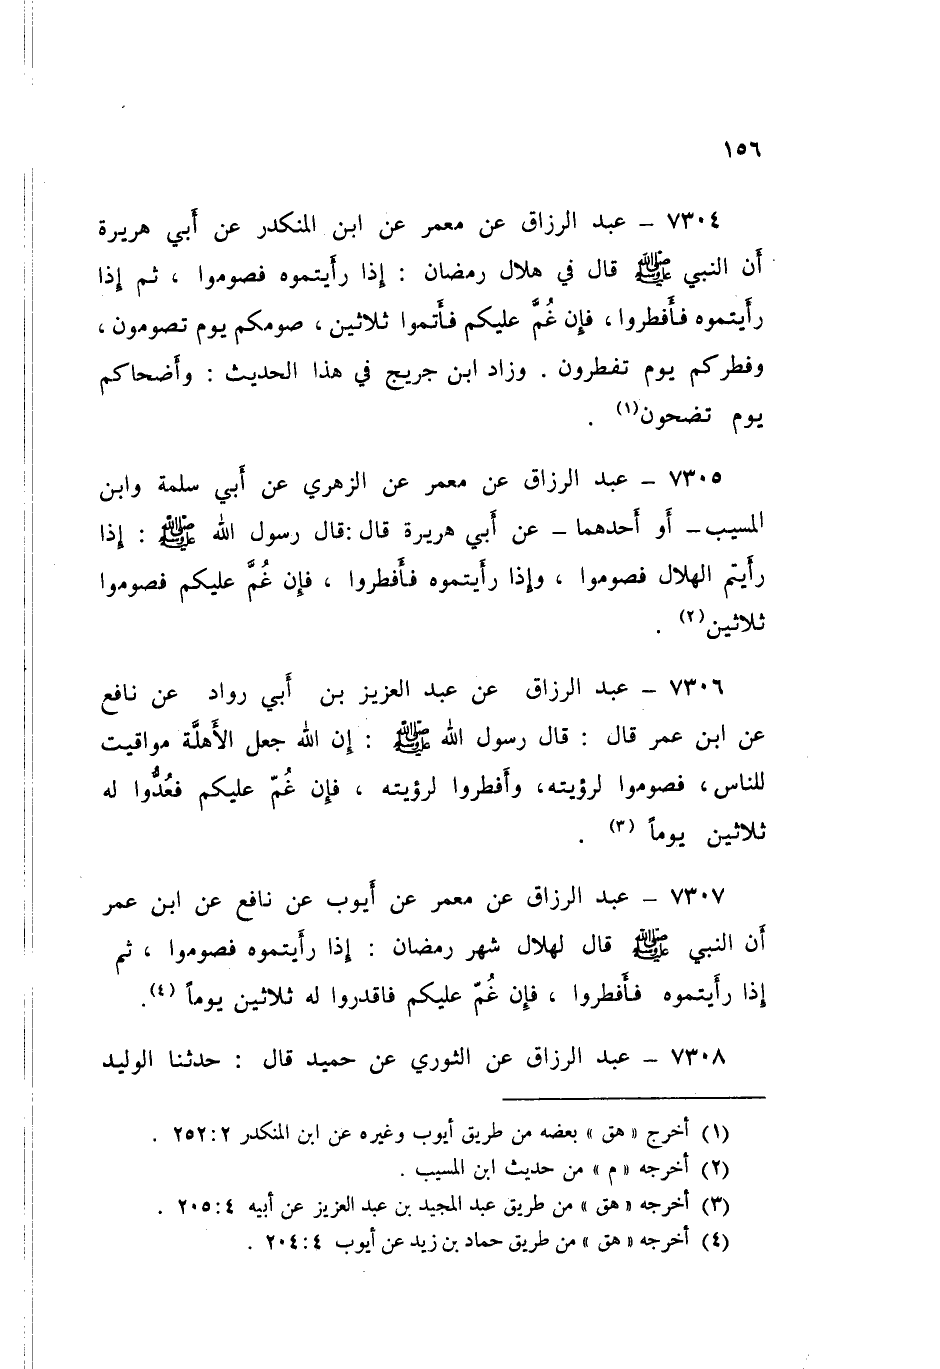 ١٥٦
٧٣٠٤ – عبد الرزاق عن معمر عن ابن المنكدر عن أَبي هريرة
أَن النبي ﷺ قال في هلال رمضان : إِذا رأَيتموه فصوموا ، ثم إِذا
رأَيتموه فأَفطروا ، فإِن غُمَّ عليكم فأَتموا ثلاثين ، صومكم يوم تصومون ،
وفطركم يوم تفطرون . وزاد ابن جريج في هذا الحديث : وأَضحاكم
يوم تضحون(١) .
٧٣٠٥ – عبد الرزاق عن معمر عن الزهري عن أَبي سلمة وابن
المسيب – أَو أَحدهما – عن أَبي هريرة قال : قال رسول الله ﷺ : إِذا
رأَيتم الهلال فصوموا ، وإِذا رأَيتموه فأَفطروا ، فإِن غُمَّ عليكم فصوموا
ثلاثين(٢) .
٧٣٠٦ – عبد الرزاق عن عبد العزيز بن أَبي رواد عن نافع
عن ابن عمر قال : قال رسول الله ﷺ : إِن الله جعل الأَهلَّة مواقيت
للناس ، فصوموا لرؤيته ، وأَفطروا لرؤيته ، فإِن غُمّ عليكم فعُدُّوا له
ثلاثين يوماً (٣) .
٧٣٠٧ – عبد الرزاق عن معمر عن أَيوب عن نافع عن ابن عمر
أَن النبي ﷺ قال لهلال شهر رمضان : إِذا رأَيتموه فصوموا ، ثم
إِذا رأَيتموه فأَفطروا ، فإِن غُمّ عليكم فاقدروا له ثلاثين يوماً (٤) .
٧٣٠٨ – عبد الرزاق عن الثوري عن حميد قال : حدثنا الوليد
(١) أخرج « هق » بعضه من طريق أيوب وغيره عن ابن المنكدر ٢ : ٢٥٢ .
(٢) أخرجه « م » من حديث ابن المسيب .
(٣) أخرجه « هق » من طريق عبد المجيد بن عبد العزيز عن أبيه ٤ : ٢٠٥ .
(٤) أخرجه « هق » من طريق حماد بن زيد عن أيوب ٤ : ٢٠٤ .